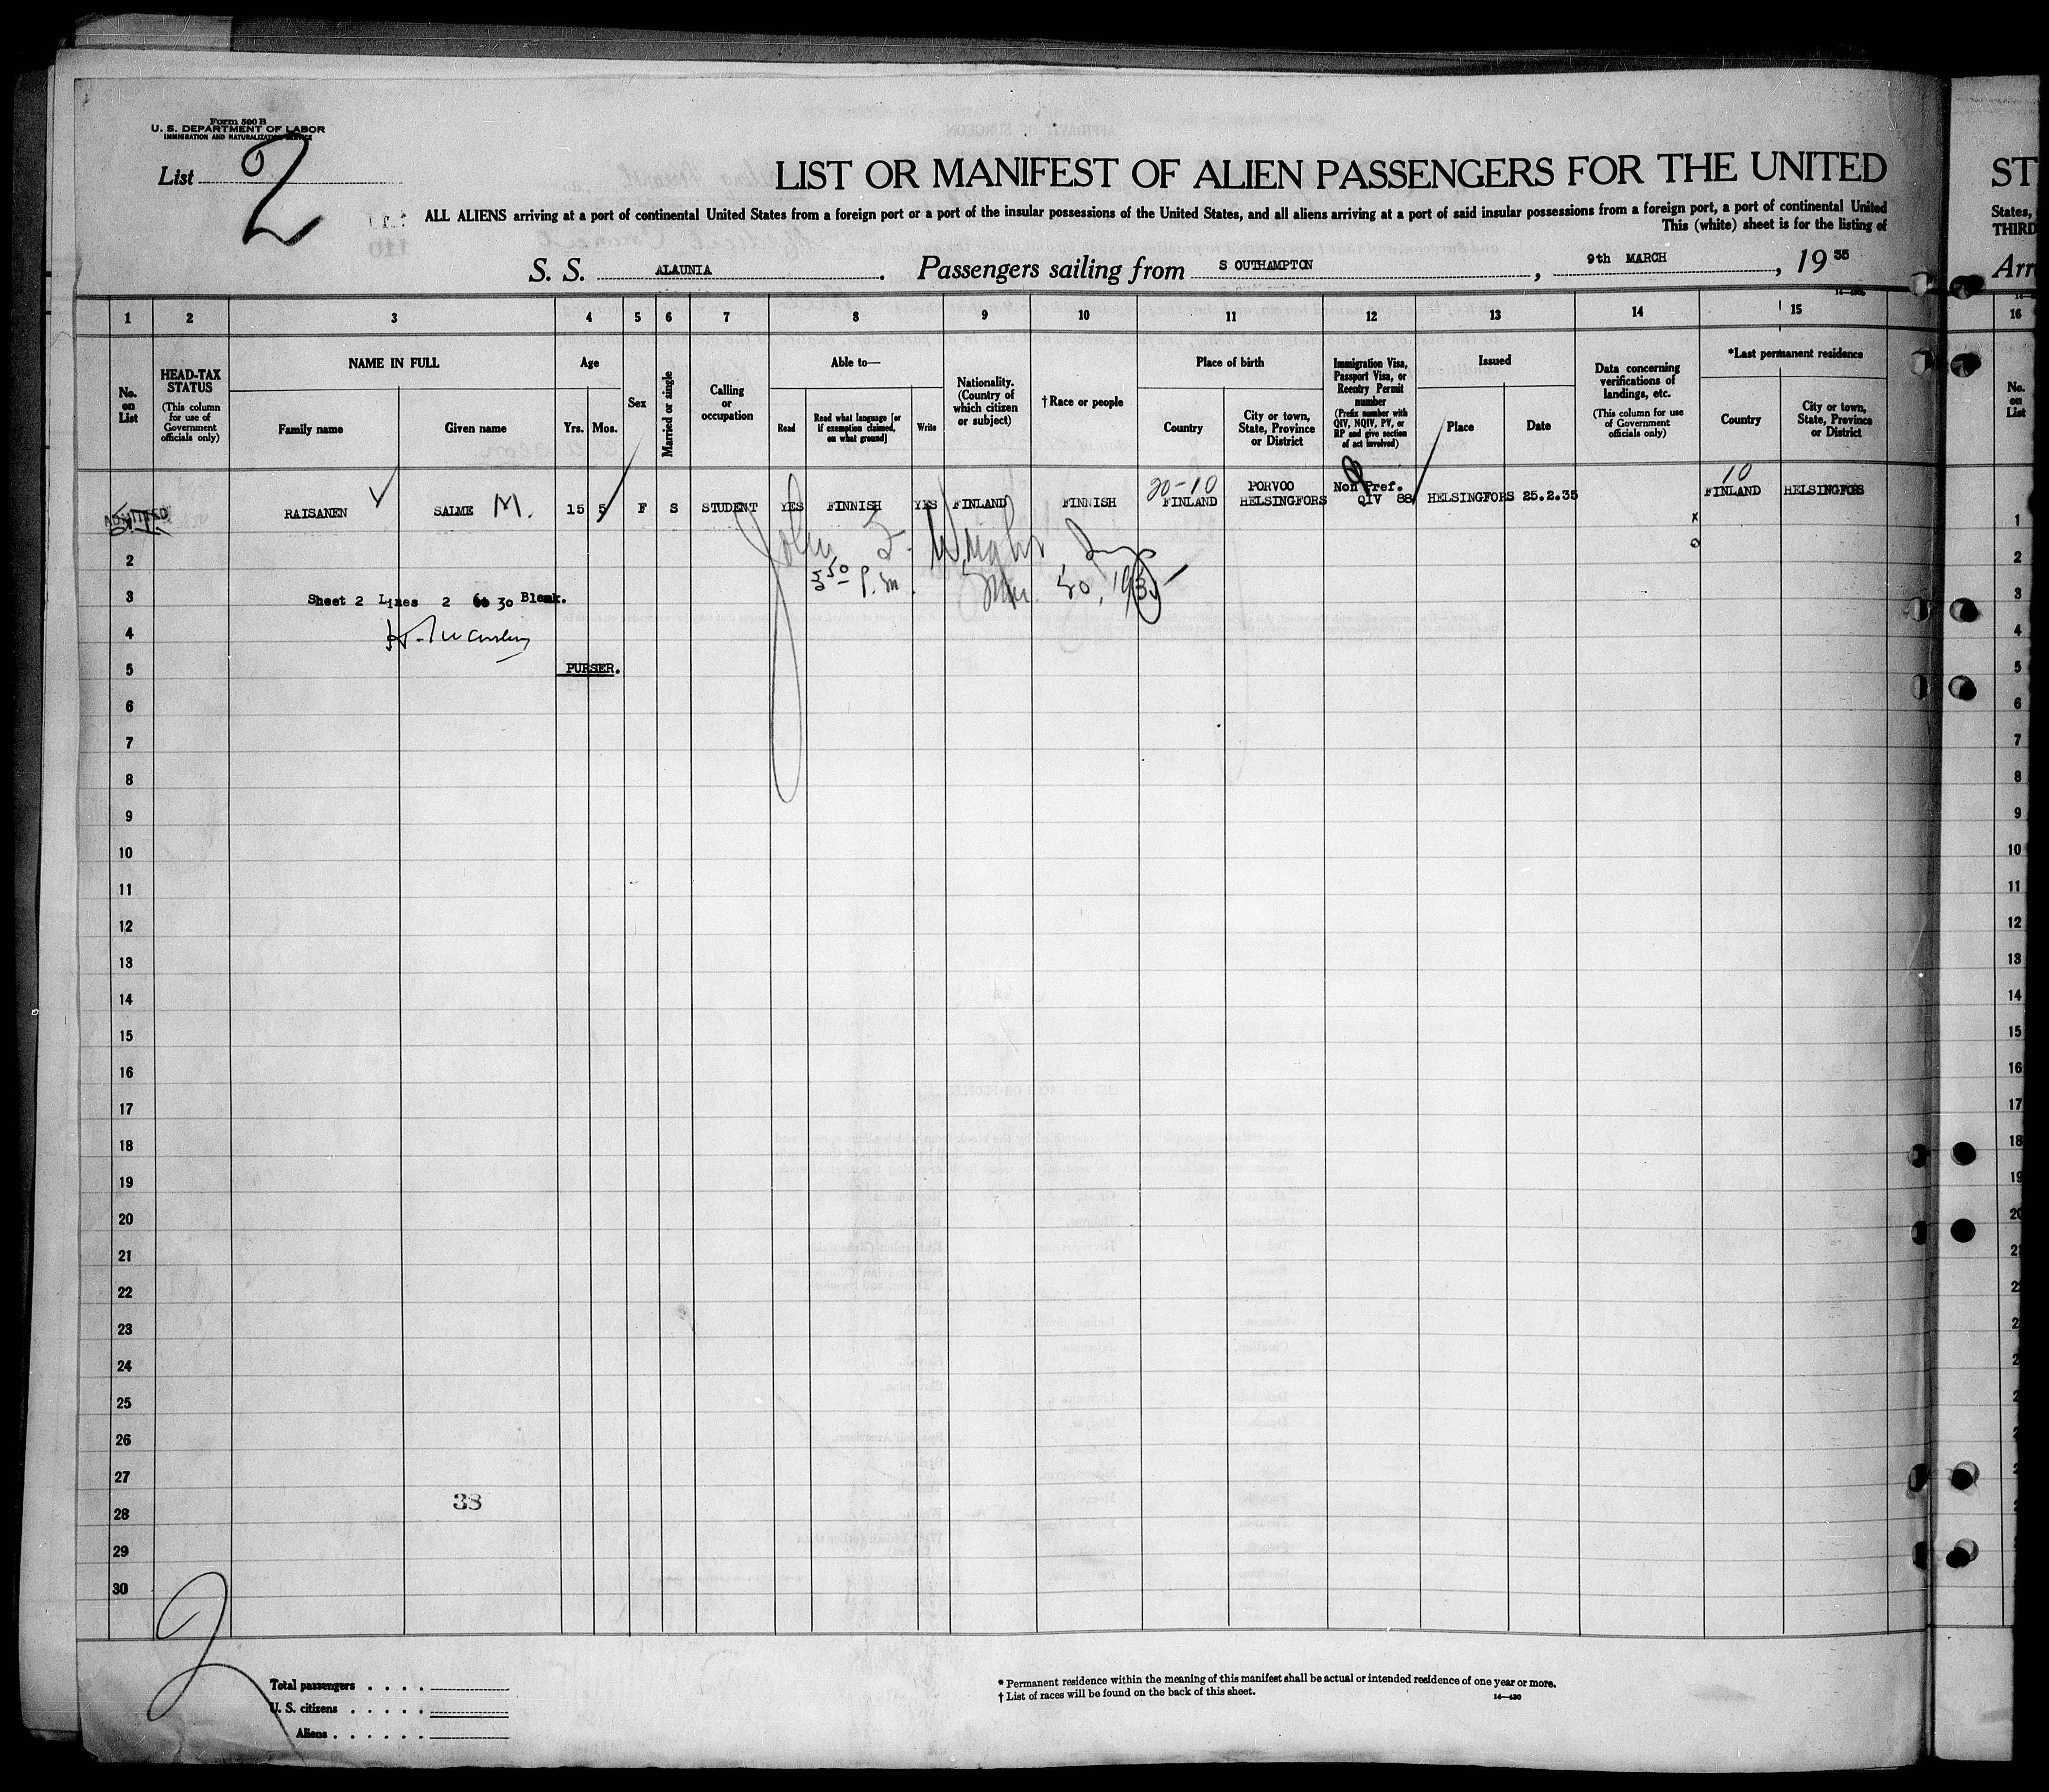 Form 500 B
U. S. DEPARTMENT OF LABOR
IMMIGRATION AND NATURALIZATION SERVICE
List 2
LIST OR MANIFEST OF ALIEN PASSENGERS FOR THE UNITED
ST
ALL ALIENS arriving at a port of continental United States from a foreign port or a port of the insular possessions of the United States, and all aliens arriving at a port of said insular possessions from a foreign port, a port of continental United
States,
This (white) sheet is for the listing of
THIRD
S. S. ALAUNIA. Passengers sailing from S OUTHAMPTON, 9th MARCH, 19 35
Arr
1 2 3 4 5 6 7 8 9 10 11 12 13 14 15
16
No. on List
HEAD-TAX STATUS
(This column for use of Government officials only)
NAME IN FULL
Family name
Given name
Age
Yrs. Mos.
Sex
Married or single
Calling or occupation
Able to—
Read
Read what language [or if exemption claimed, on what ground]
Write
Nationality. (Country of which citizen or subject)
†Race or people
Place of birth
Country
City or town, State, Province or District
Immigration Visa, Passport Visa, or Reentry Permit number
(Prefix number with QIV, NQIV, PV, or RP and give section of act involved)
Issued
Place
Date
Data concerning verifications of landings, etc.
(This column for use of Government officials only)
*Last permanent residence
Country
City or town, State, Province or District
No. on List
20-10 PORVOO Non Pref. 10
ADMITTED RAISANEN SALME M. 15 5 F S STUDENT YES FINNISH YES FINLAND FINNISH FINLAND HELSINGFORS QIV 88 HELSINGFORS 25.2.35 FINLAND HELSINGFORS
x
1
John Wright
2
2
3 Sheet 2 Lines 2 to 30 Blank.
3
4
4
5 PURSER.
5
6
6
7
7
8
8
9
9
10
10
11
11
12
12
13
13
14
14
15
15
16
16
17
17
18
18
19
19
20
20
21
22
23
24
25
26
27
38
28
29
30
2
Total passengers
U. S. citizens
Aliens
* Permanent residence within the meaning of this manifest shall be actual or intended residence of one year or more.
† List of races will be found on the back of this sheet.
14—430